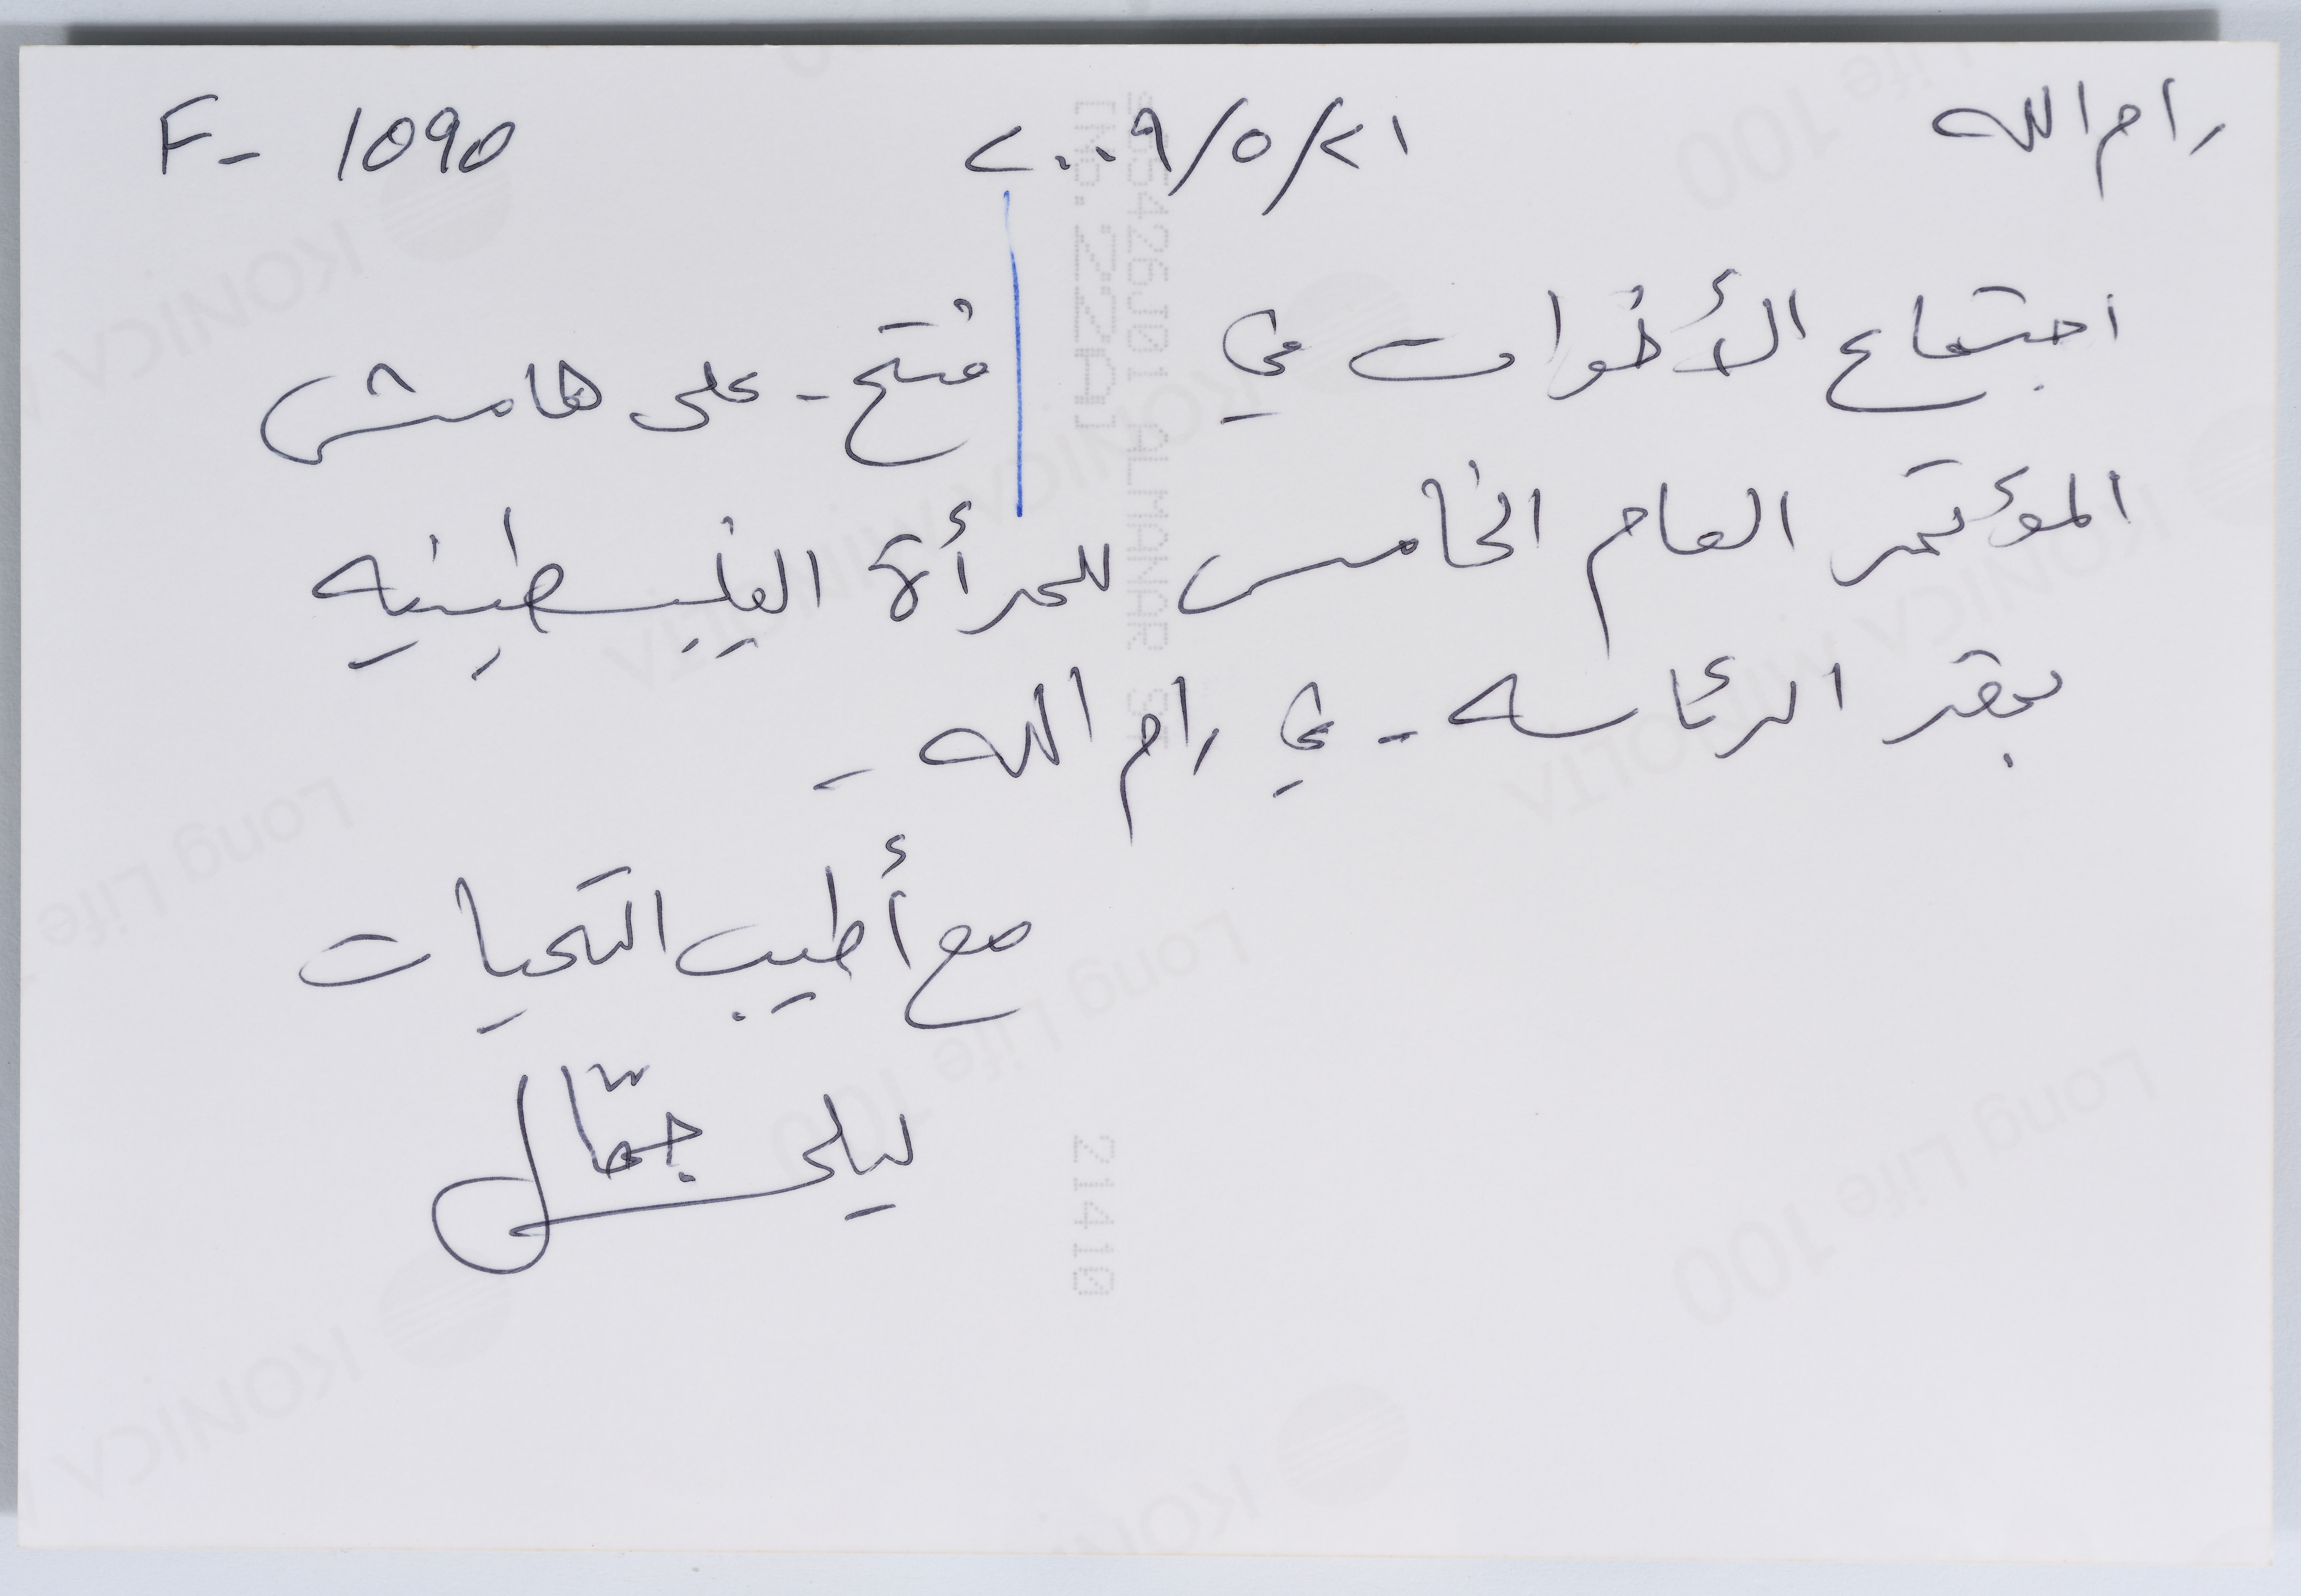 رام الله ٢٠٠٩/٥/٢١ F- 1090
اجتماع الأخوات في فتح - على هامش
المؤتمر العام الخامس للمرأة الفلسطينيه
بمقر الرئاسه - في رام الله -
مع أطيب التحيات
ليلى جمّال
KONICA MINOLTA
Long Life 100
21410